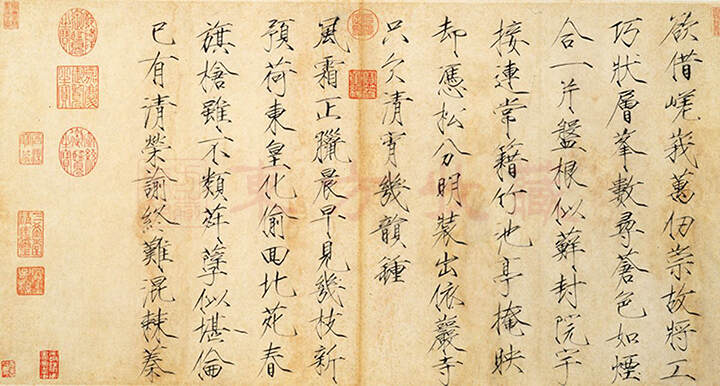 欲借嵯峩萬仞崇故將工
巧狀層峯數尋蒼色如煙
合一片盤根似蘚封院宇
接連常籍竹池亭掩映
却憑松分明裝出依巖寺
只欠清宵幾韻鍾
風霜正臘晨早見幾枝新
預荷東皇化偷囬北苑春
旗槍雖不類荈孽似堪倫
已有清榮諭終難混棘蓁